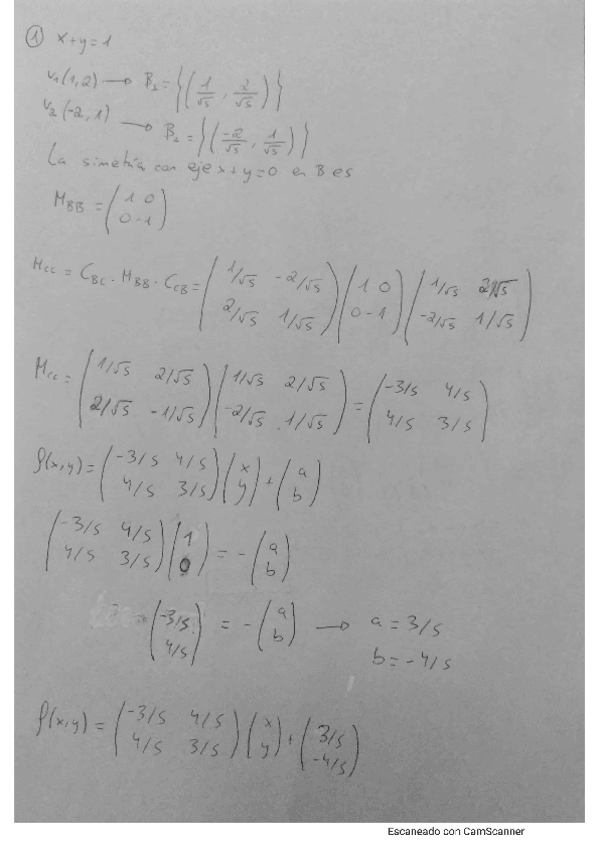 ① x+y=1
v₁(1,2) → B₁={(1/√5, 2/√5)}
v₂(-2,1) → B₂={(-2/√5, 1/√5)}
La simetría con eje x+y=0 en B es
M_BB = (1 0; 0 -1)
M_CC = C_BC · M_BB · C_CB = (1/√5 -2/√5; 2/√5 1/√5)(1 0; 0 -1)(1/√5 2/√5; -2/√5 1/√5)
M_CC = (1/√5 2/√5; 2/√5 -1/√5)(1/√5 2/√5; -2/√5 1/√5) = (-3/5 4/5; 4/5 3/5)
f(x,y) = (-3/5 4/5; 4/5 3/5)(x; y) + (a; b)
(-3/5 4/5; 4/5 3/5)(1; 0) = -(a; b)
(-3/5; 4/5) = -(a; b) → a = 3/5
b = -4/5
f(x,y) = (-3/5 4/5; 4/5 3/5)(x; y) + (3/5; -4/5)
Escaneado con CamScanner